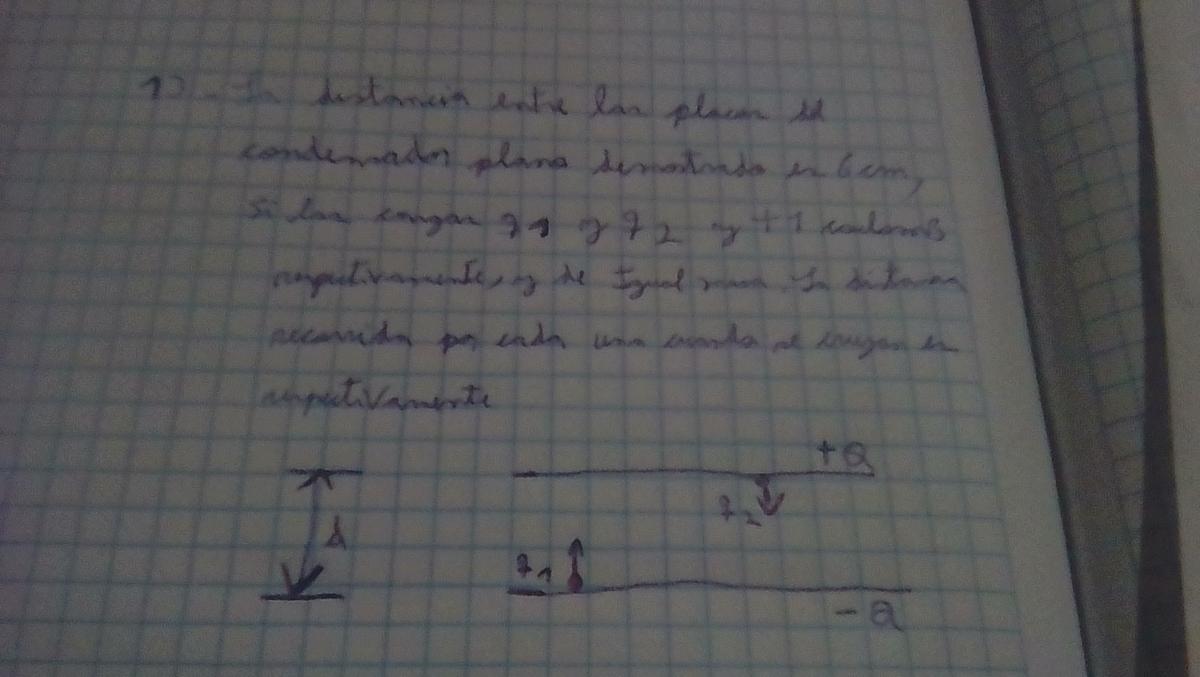 1) La distancia entre las placas del
condensador plano demostrado es 6 cm,
si las cargas q1 y q2 y +1 coulombs
respectivamente, y de Igual masa. La distancia
recorrida por cada una cuando se cruzan es
respectivamente
+Q
q2
d
q1
-Q